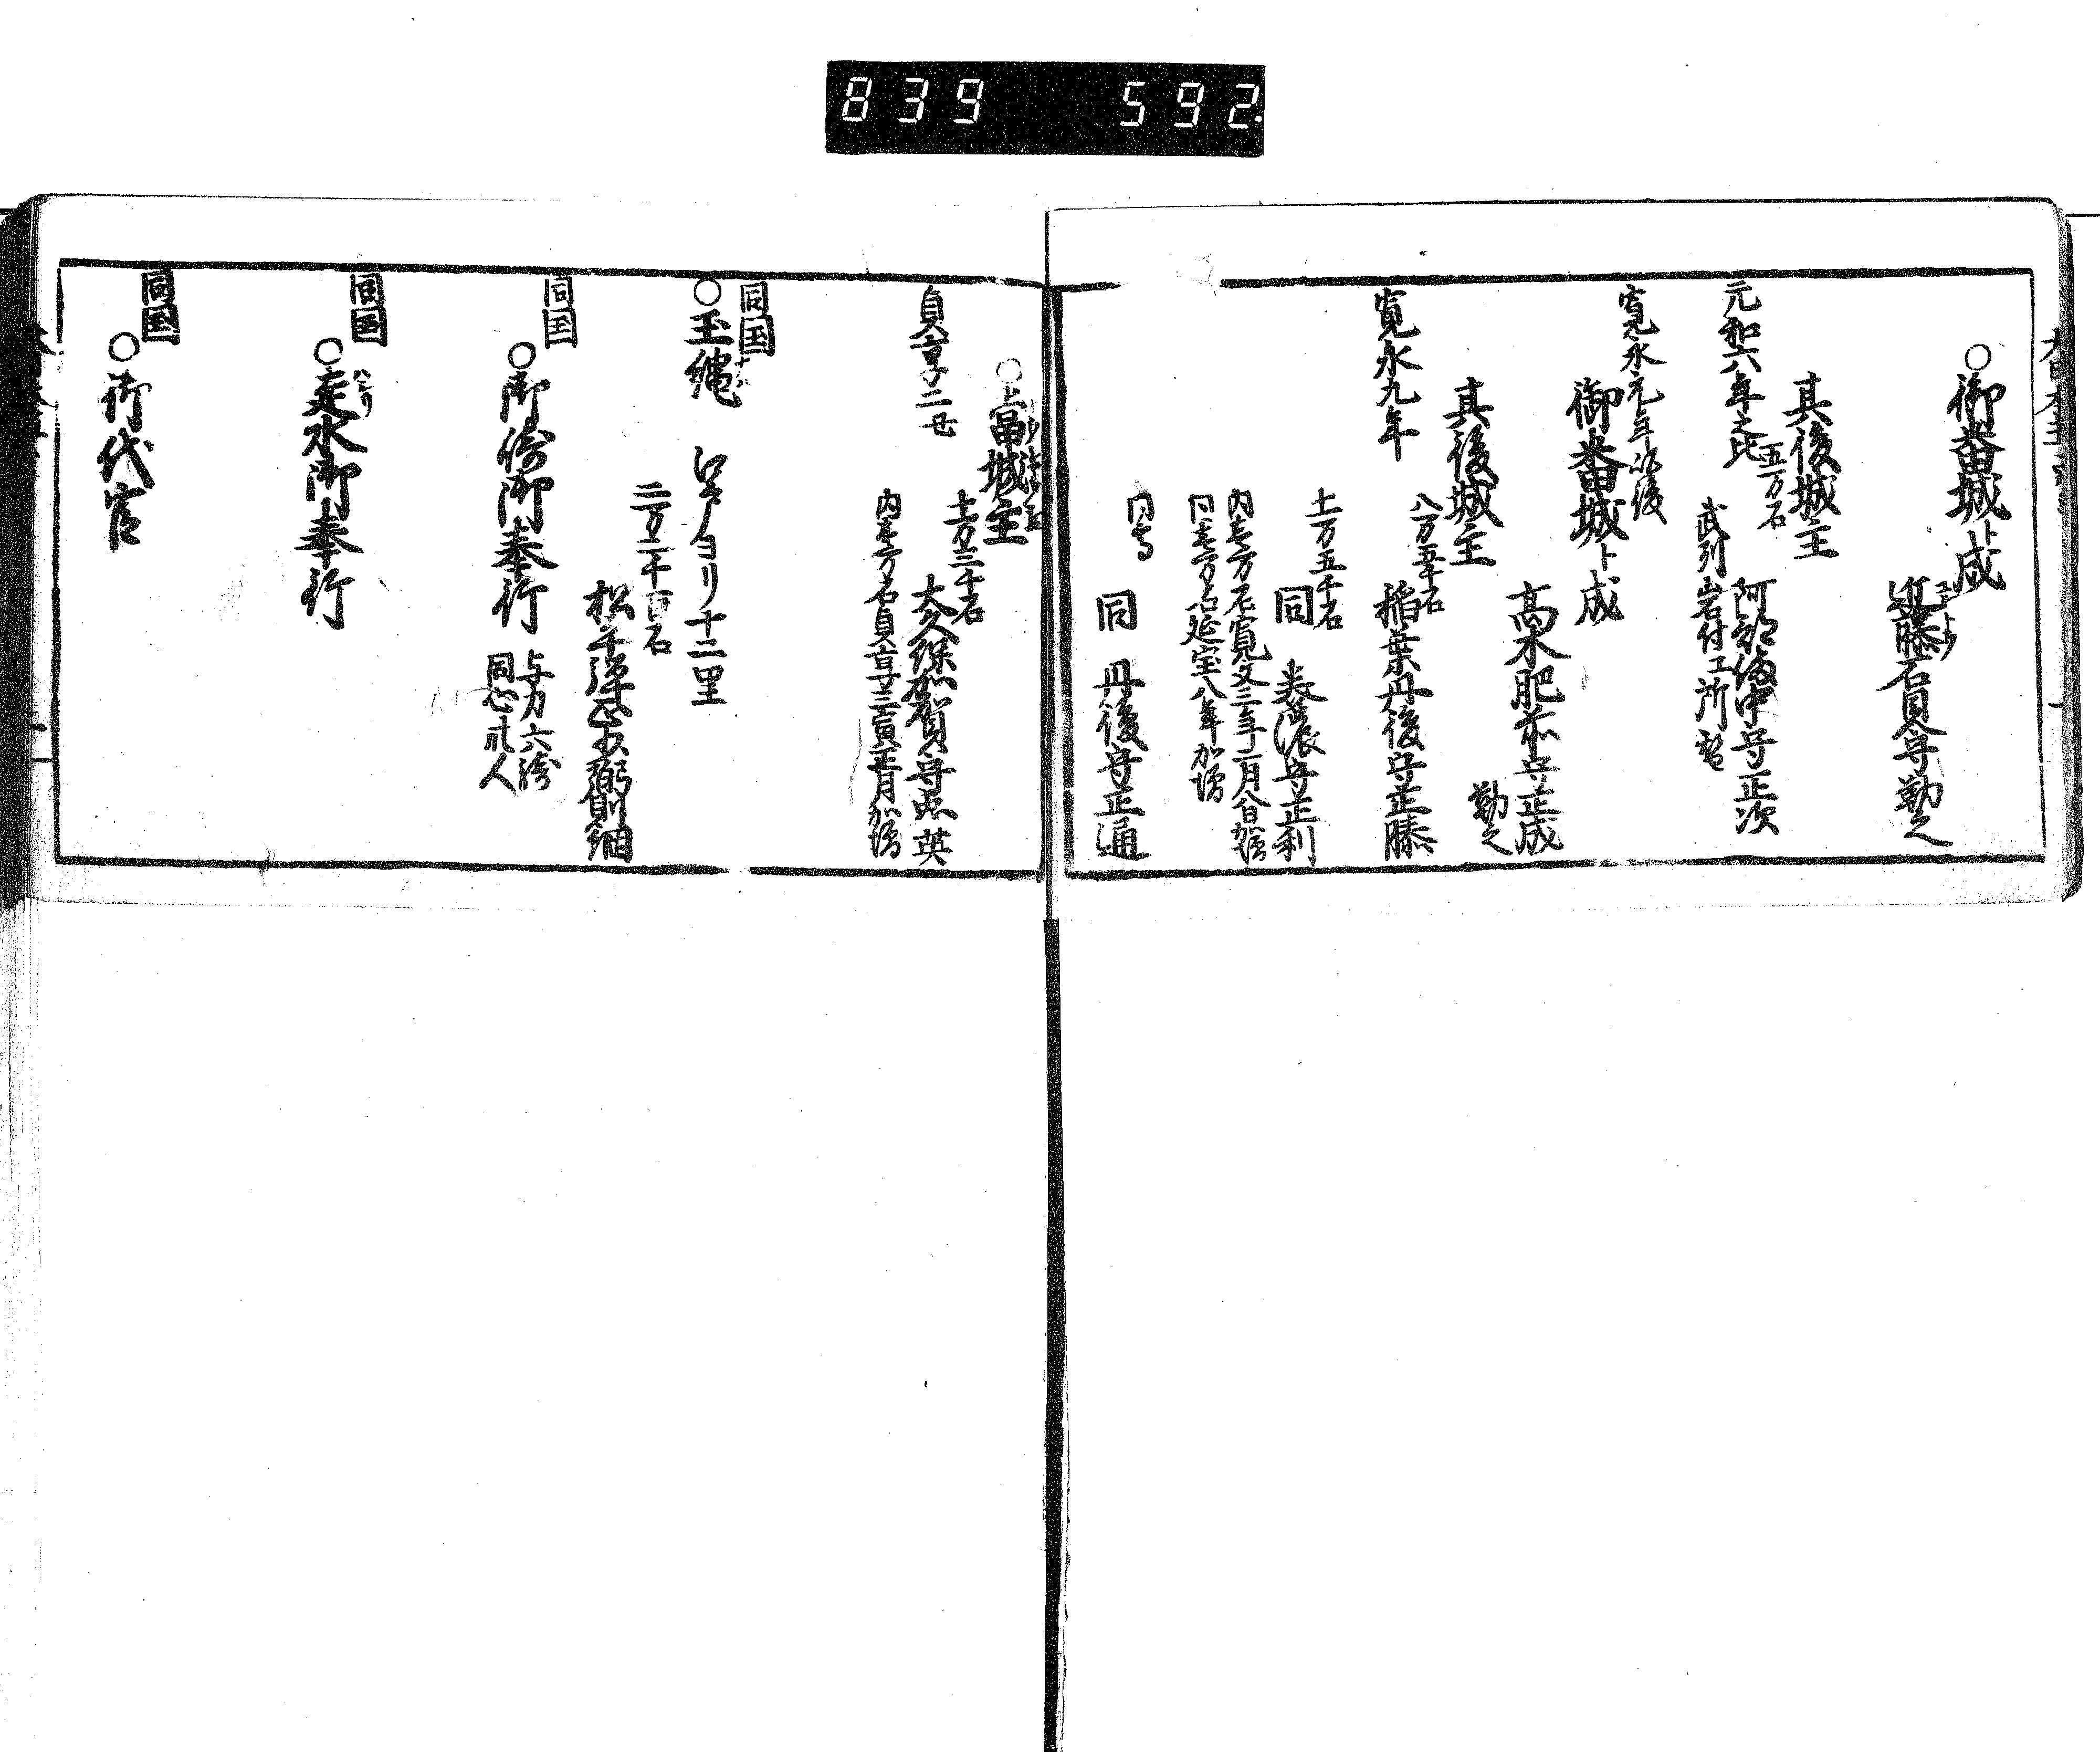 839 592
○御番城ト成
近藤石見守勤之
其後城主
五万石
元和六年之比
阿部備中守正次
武列岩付エ所替
寛永元年以後
御番城ト成
高木肥前守正成
勤之
其後城主
八万五千石
寛永九年
稲葉丹後守正勝
十一万五千石
同 美濃守正利
内壱万石寛文三年二月八日加増
同壱万石延宝八年加増
同 丹後守正通
当城主
十一万三千石
貞享二
大久保加賀守忠英
内壱万石貞享三寅正月加増
同国
○玉縄 江戸ヨリ十二里
二万二千百石
松平弾正少弼則綱
同国
○御伝御奉行
与力六騎
同心
同国
○走水御奉行
同国
○御代官